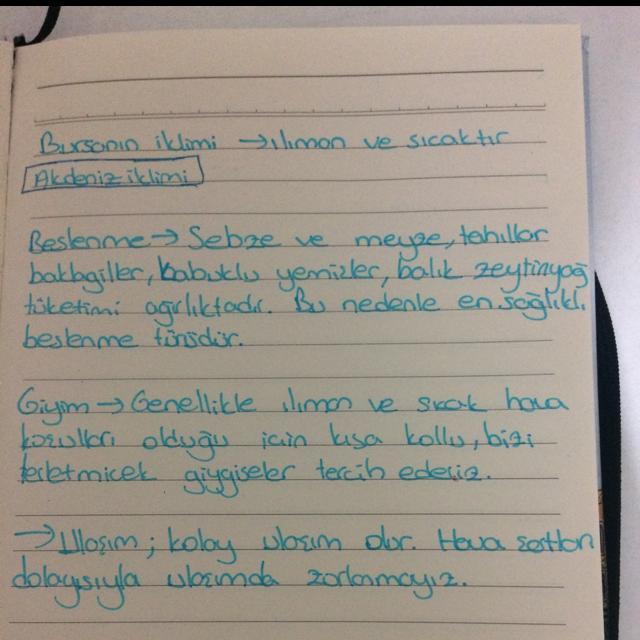 Bursanın iklimi → ılıman ve sıcaktır
Akdeniz iklimi
Beslenme → Sebze ve meyze, tahıllar
baklagiller, kabuklu yemizler, balık zeytinyağ
tüketimi ağırlıktadır. Bu nedenle en sağlıklı
beslenme türüdür.
Giyim → Genellikle ılıman ve sıcak hava
koşulları olduğu için kısa kollu, bizi
terletmicek giygiseler tercih ederiz.
→ Ulaşım ; kolay ulaşım olur. Hava şartları
dolayısıyla ulaşımda zorlanmayız.